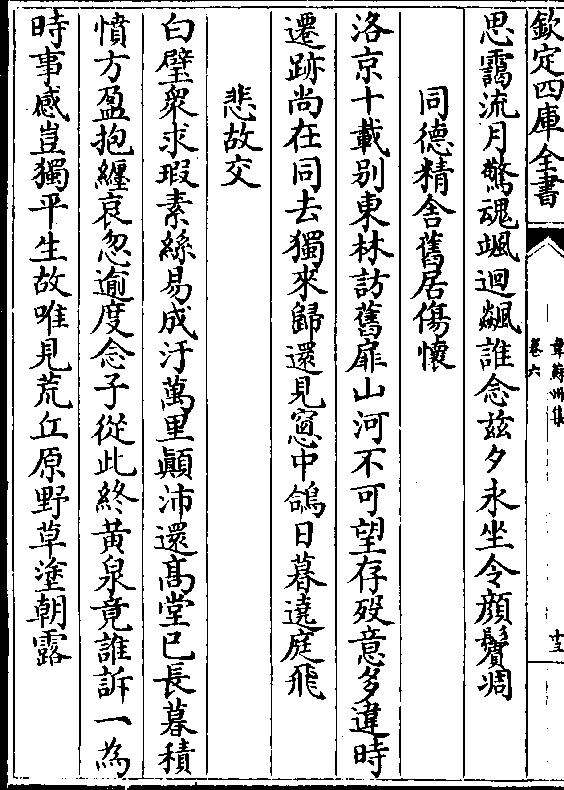 欽定四庫全書
韋蘇州集
卷六
十三
思靄流月驚魂颯迴飊誰念兹夕永坐令顔鬢凋
同德精舍舊居傷懷
洛京十載别東林訪舊扉山河不可望存殁意多違時
遷跡尚在同去獨來歸還見窓中鴿日暮遶庭飛
悲故交
白璧衆求瑕素絲易成汙萬里顚沛還髙堂已長暮積
憤方盈抱纒哀忽逾度念子從此終黄泉竟誰訴一為
時事感豈獨平生故唯見荒丘原野草塗朝露